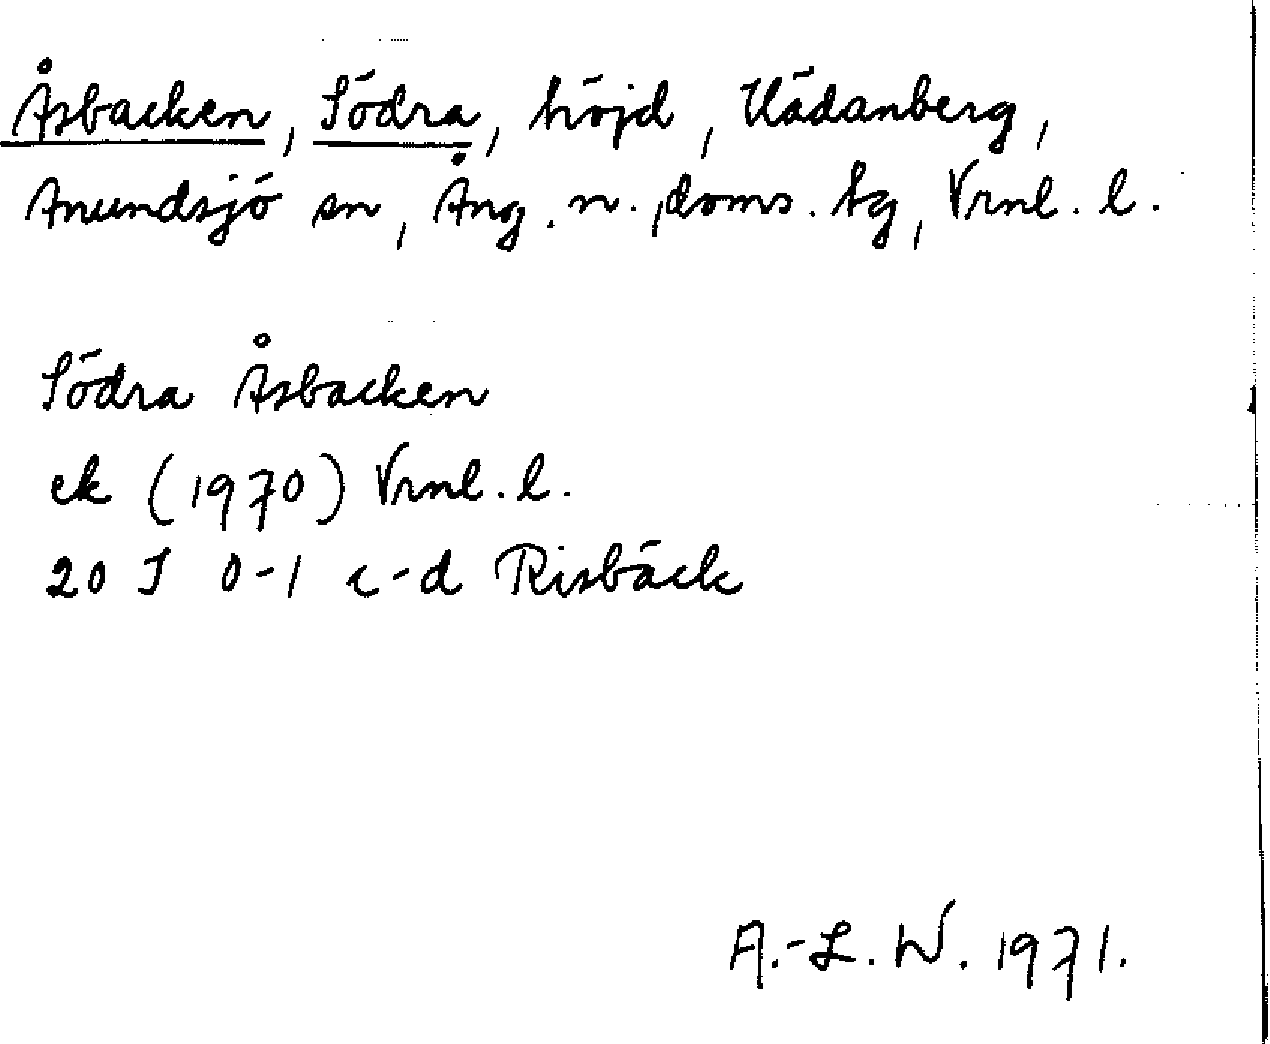 Åsbacken, Södra, höjd, Kädanberg,
Anundsjö sn, Ång. n. doms. tg, Vrnl. l.
Södra Åsbacken
ek (1970) Vrnl. l.
20 I 0-1 c-d Risbäck
A.-L. W. 1971.